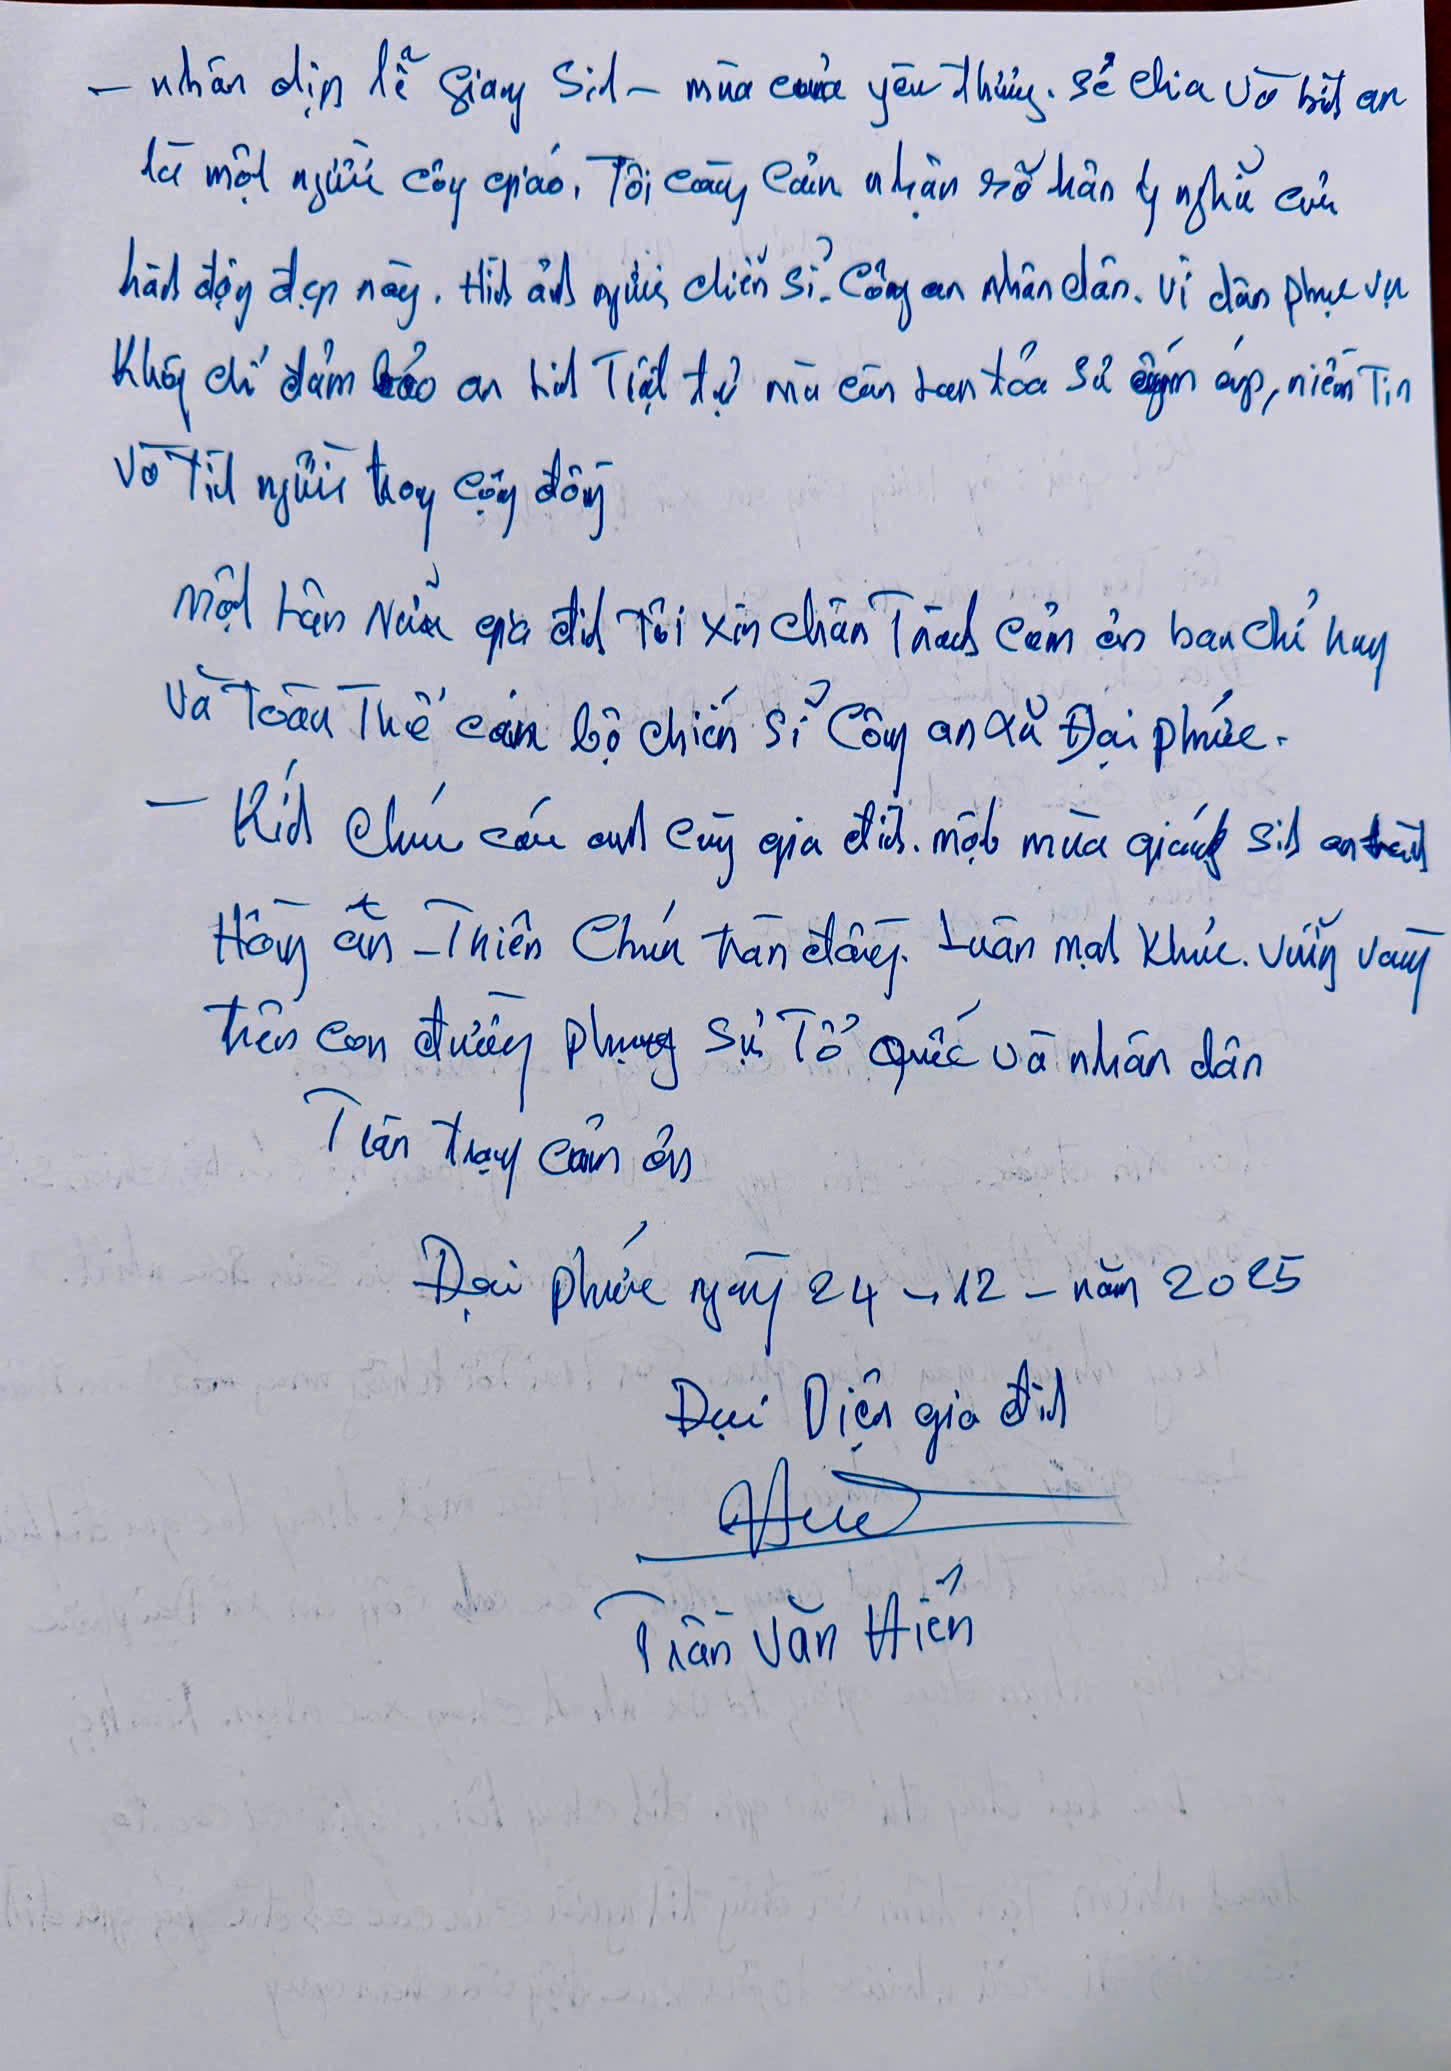 - nhân dịp lễ Giáng Sinh - mùa của yêu thương. sẻ chia và bình an
là một người công giáo. Tôi càng cảm nhận rõ hơn ý nghĩa của
hành động đẹp này. Hình ảnh người chiến sĩ. Công an nhân dân. vì dân phục vụ
Không chỉ đảm bảo an ninh Trật tự mà còn lan tỏa sự ấm áp, niềm Tin
và Tình người trong cộng đồng
một lần nữa gia đình Tôi xin chân Thành cảm ơn ban chỉ huy
và Toàn Thể cán bộ chiến sĩ Công an xã Đại phước.
- Kính chúc các anh cùng gia đình. một mùa giáng sinh an lành
Hồng ân - Thiên Chúa tràn đầy. luôn mạnh khỏe. vững vàng
trên con đường phụng sự Tổ quốc và nhân dân
Trân trọng cảm ơn
Đại phước ngày 24 - 12 - năm 2025
Đại Diện gia đình
Trần Văn Hiến